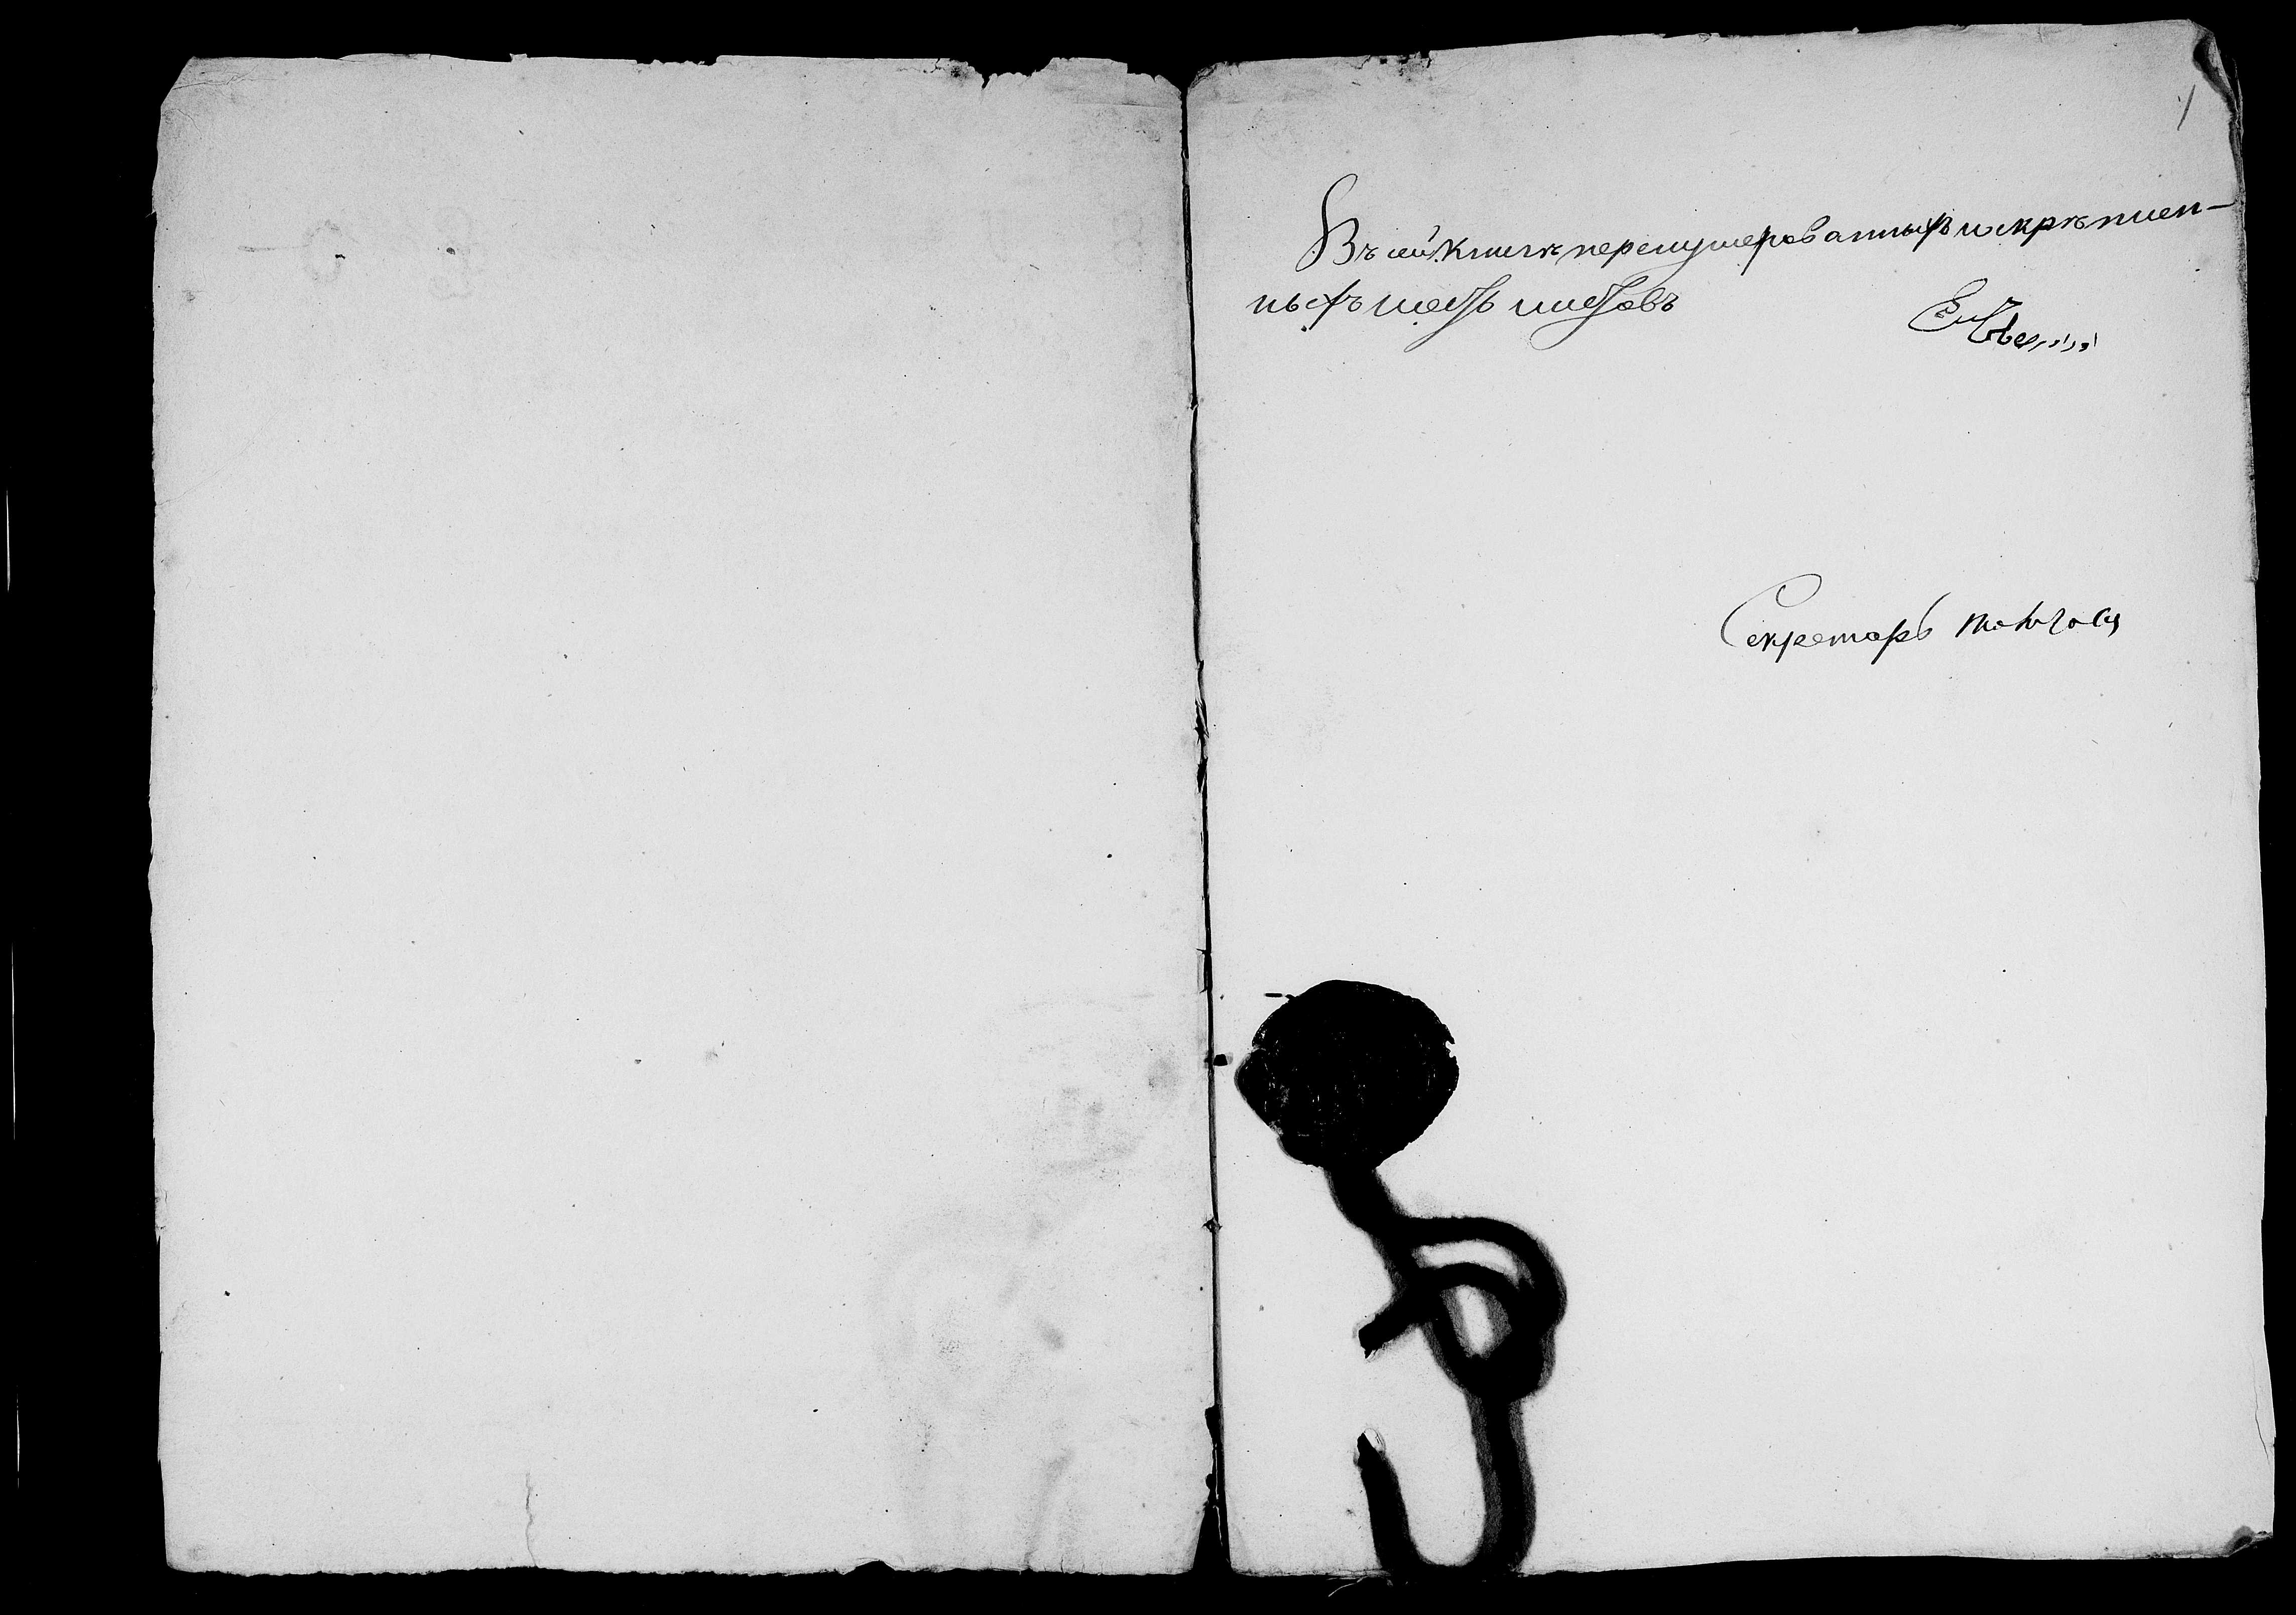 1
Въ сей книгѣ перенумерованныхъ и скрѣплен-
ныхъ шесть листовъ
Секретарь